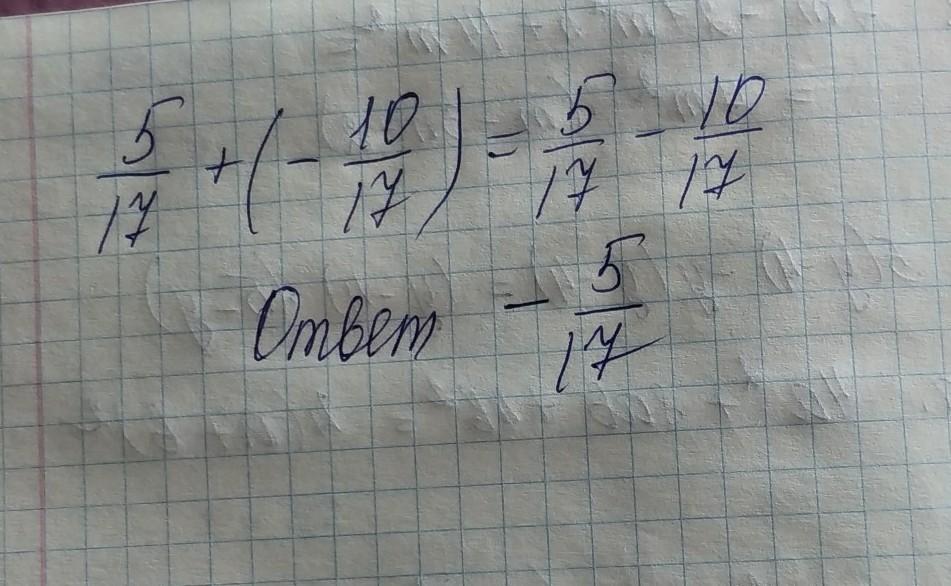 5/17 + (- 10/17) = 5/17 - 10/17
Ответ - 5/17